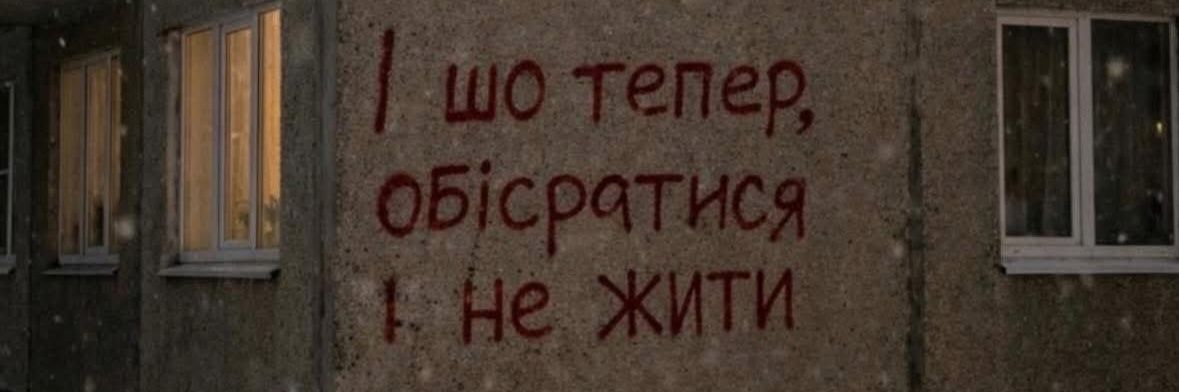 І шо тепер,
обісратися
і не жити